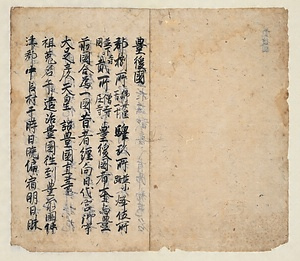 豊後國
郡捌所 驛玖所 烽伍所
貳所 豊後國者本與豊
前國合為一國昔者纏向日代宮御宇
大足彦天皇 詔豊國直等
祖菟名手遣治豊國往到豊前國仲
津郡中臣村于時日晩僑宿明日昧